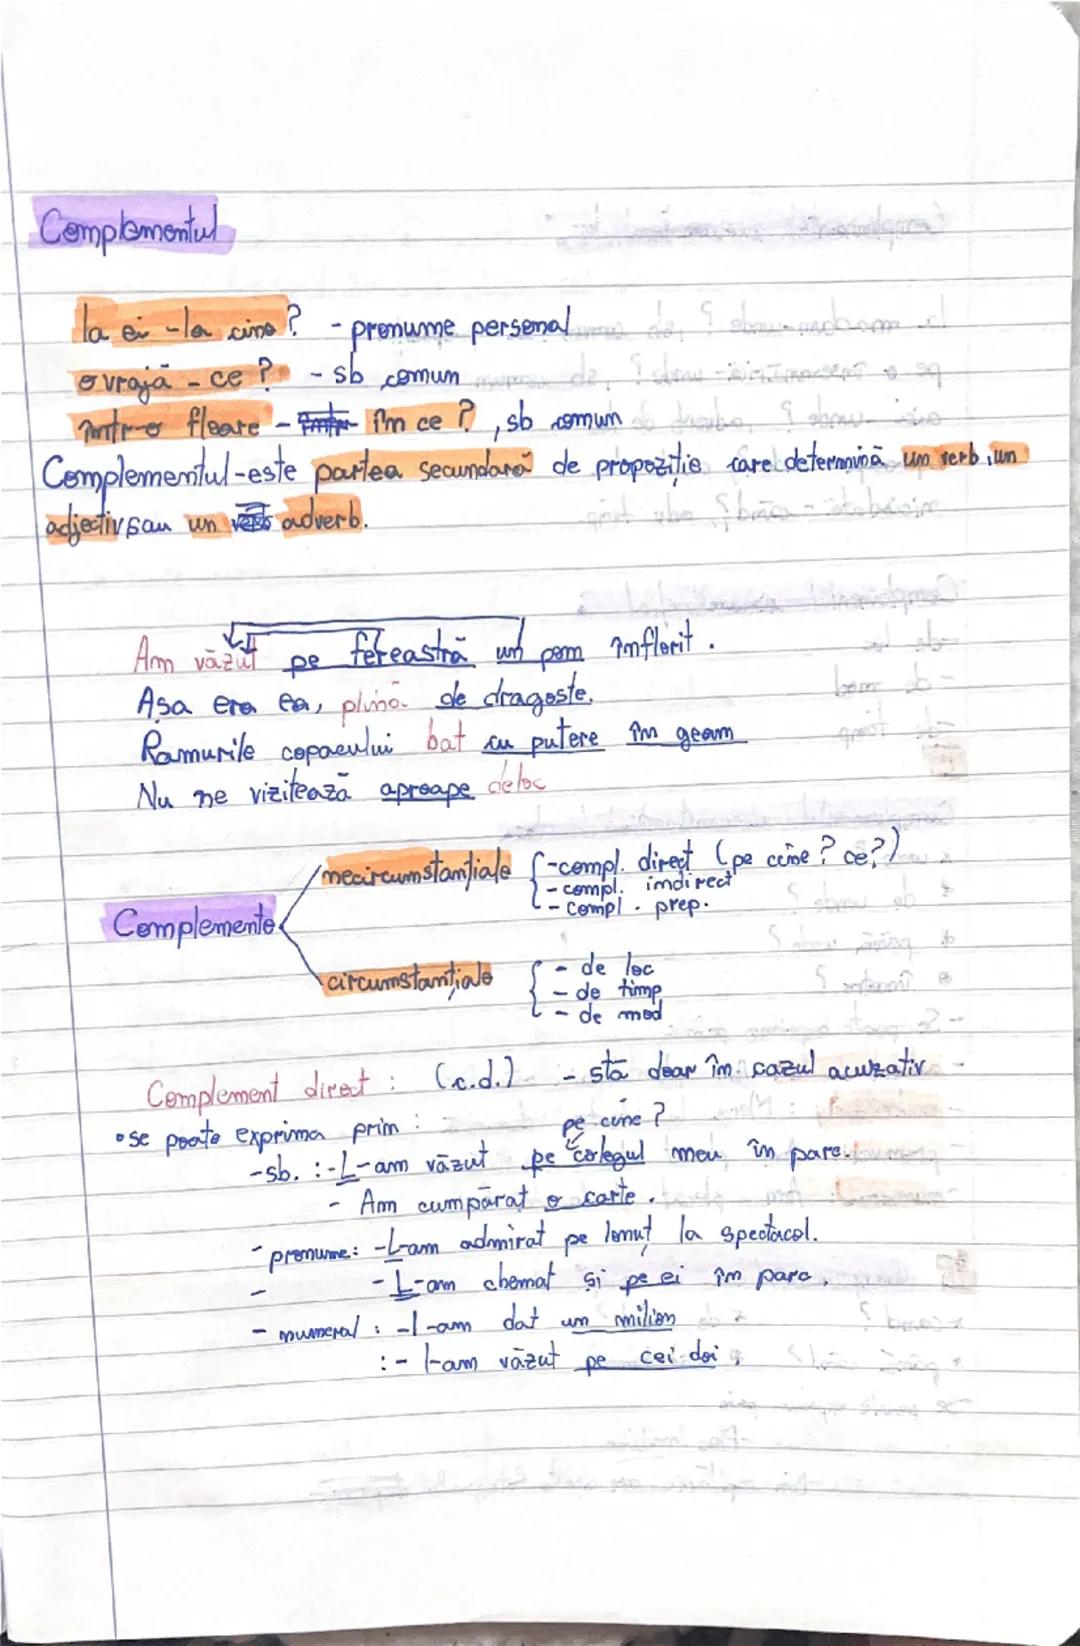 Complementul
la ei - la cine? - pronume personal
o vrajă - ce? - sb comun
într-o floare - în ce?, sb comun
Complementul - este partea secundară de propoziție care determină un verb, un
adjectiv sau un adverb.
Am văzut pe fereastră un pom înflorit.
Așa era ea, plină de dragoste.
Ramurile copacului bat cu putere în geam
Nu ne vizitează aproape deloc
Complemente
necircumstanțiale
- compl. direct (pe cine? ce?)
- compl. indirect
- compl. prep.
circumstanțiale
- de loc
- de timp
- de mod
Complement direct: (c.d.) - stă doar în cazul acuzativ
• se poate exprima prin:
pe cine?
- sb. : - L-am văzut pe colegul meu în parc.
- Am cumpărat o carte.
- pronume: - L-am admirat pe Ionuț la spectacol.
- - L-am chemat și pe ei în parc.
- numeral : - I-am dat un milion
: - I-am văzut pe cei doi.